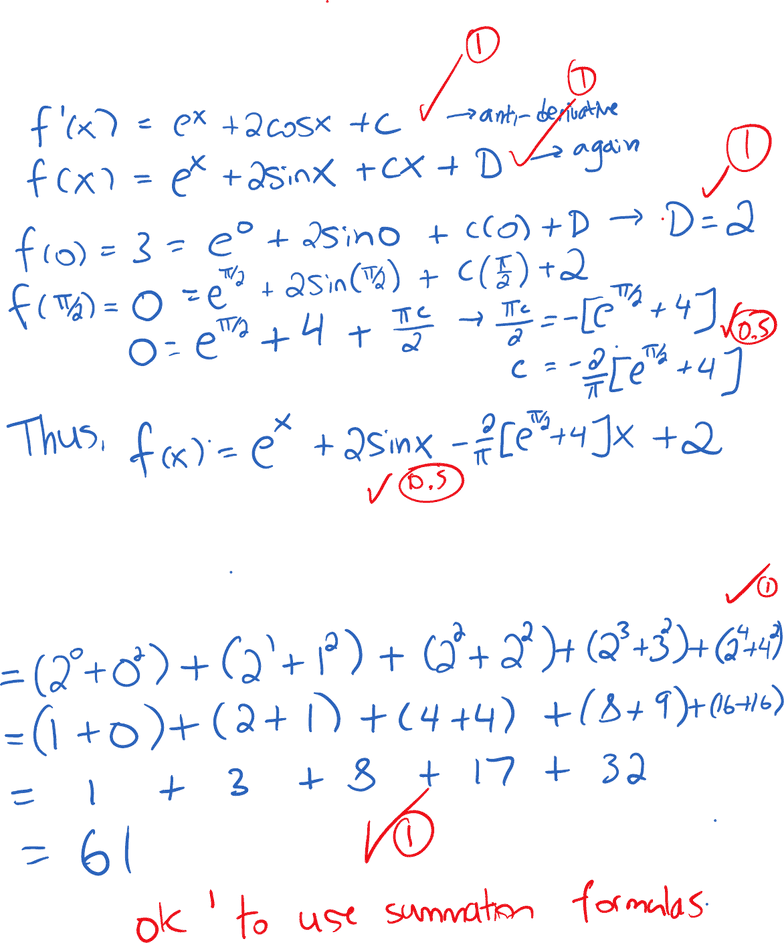 ①
f'(x) = e^x + 2cosx + C ✓ → anti-derivative ①
f(x) = e^x + 2sinx + cx + D ✓ → again ①
f(0) = 3 = e^0 + 2sin0 + c(0) + D → D = 2 ✓
f(π/2) = 0 = e^{π/2} + 2sin(π/2) + c(π/2) + 2
0 = e^{π/2} + 4 + πc/2 → πc/2 = -[e^{π/2} + 4] ✓ 0.5
c = -2/π [e^{π/2} + 4]
Thus, f(x) = e^x + 2sinx - 2/π [e^{π/2} + 4]x + 2
✓ 0.5
✓ ①
= (2^0 + 0^2) + (2^1 + 1^2) + (2^2 + 2^2) + (2^3 + 3^2) + (2^4 + 4^2)
= (1 + 0) + (2 + 1) + (4 + 4) + (8 + 9) + (16 + 16)
= 1 + 3 + 8 + 17 + 32
= 61 ✓ ①
ok ' to use summation formulas.